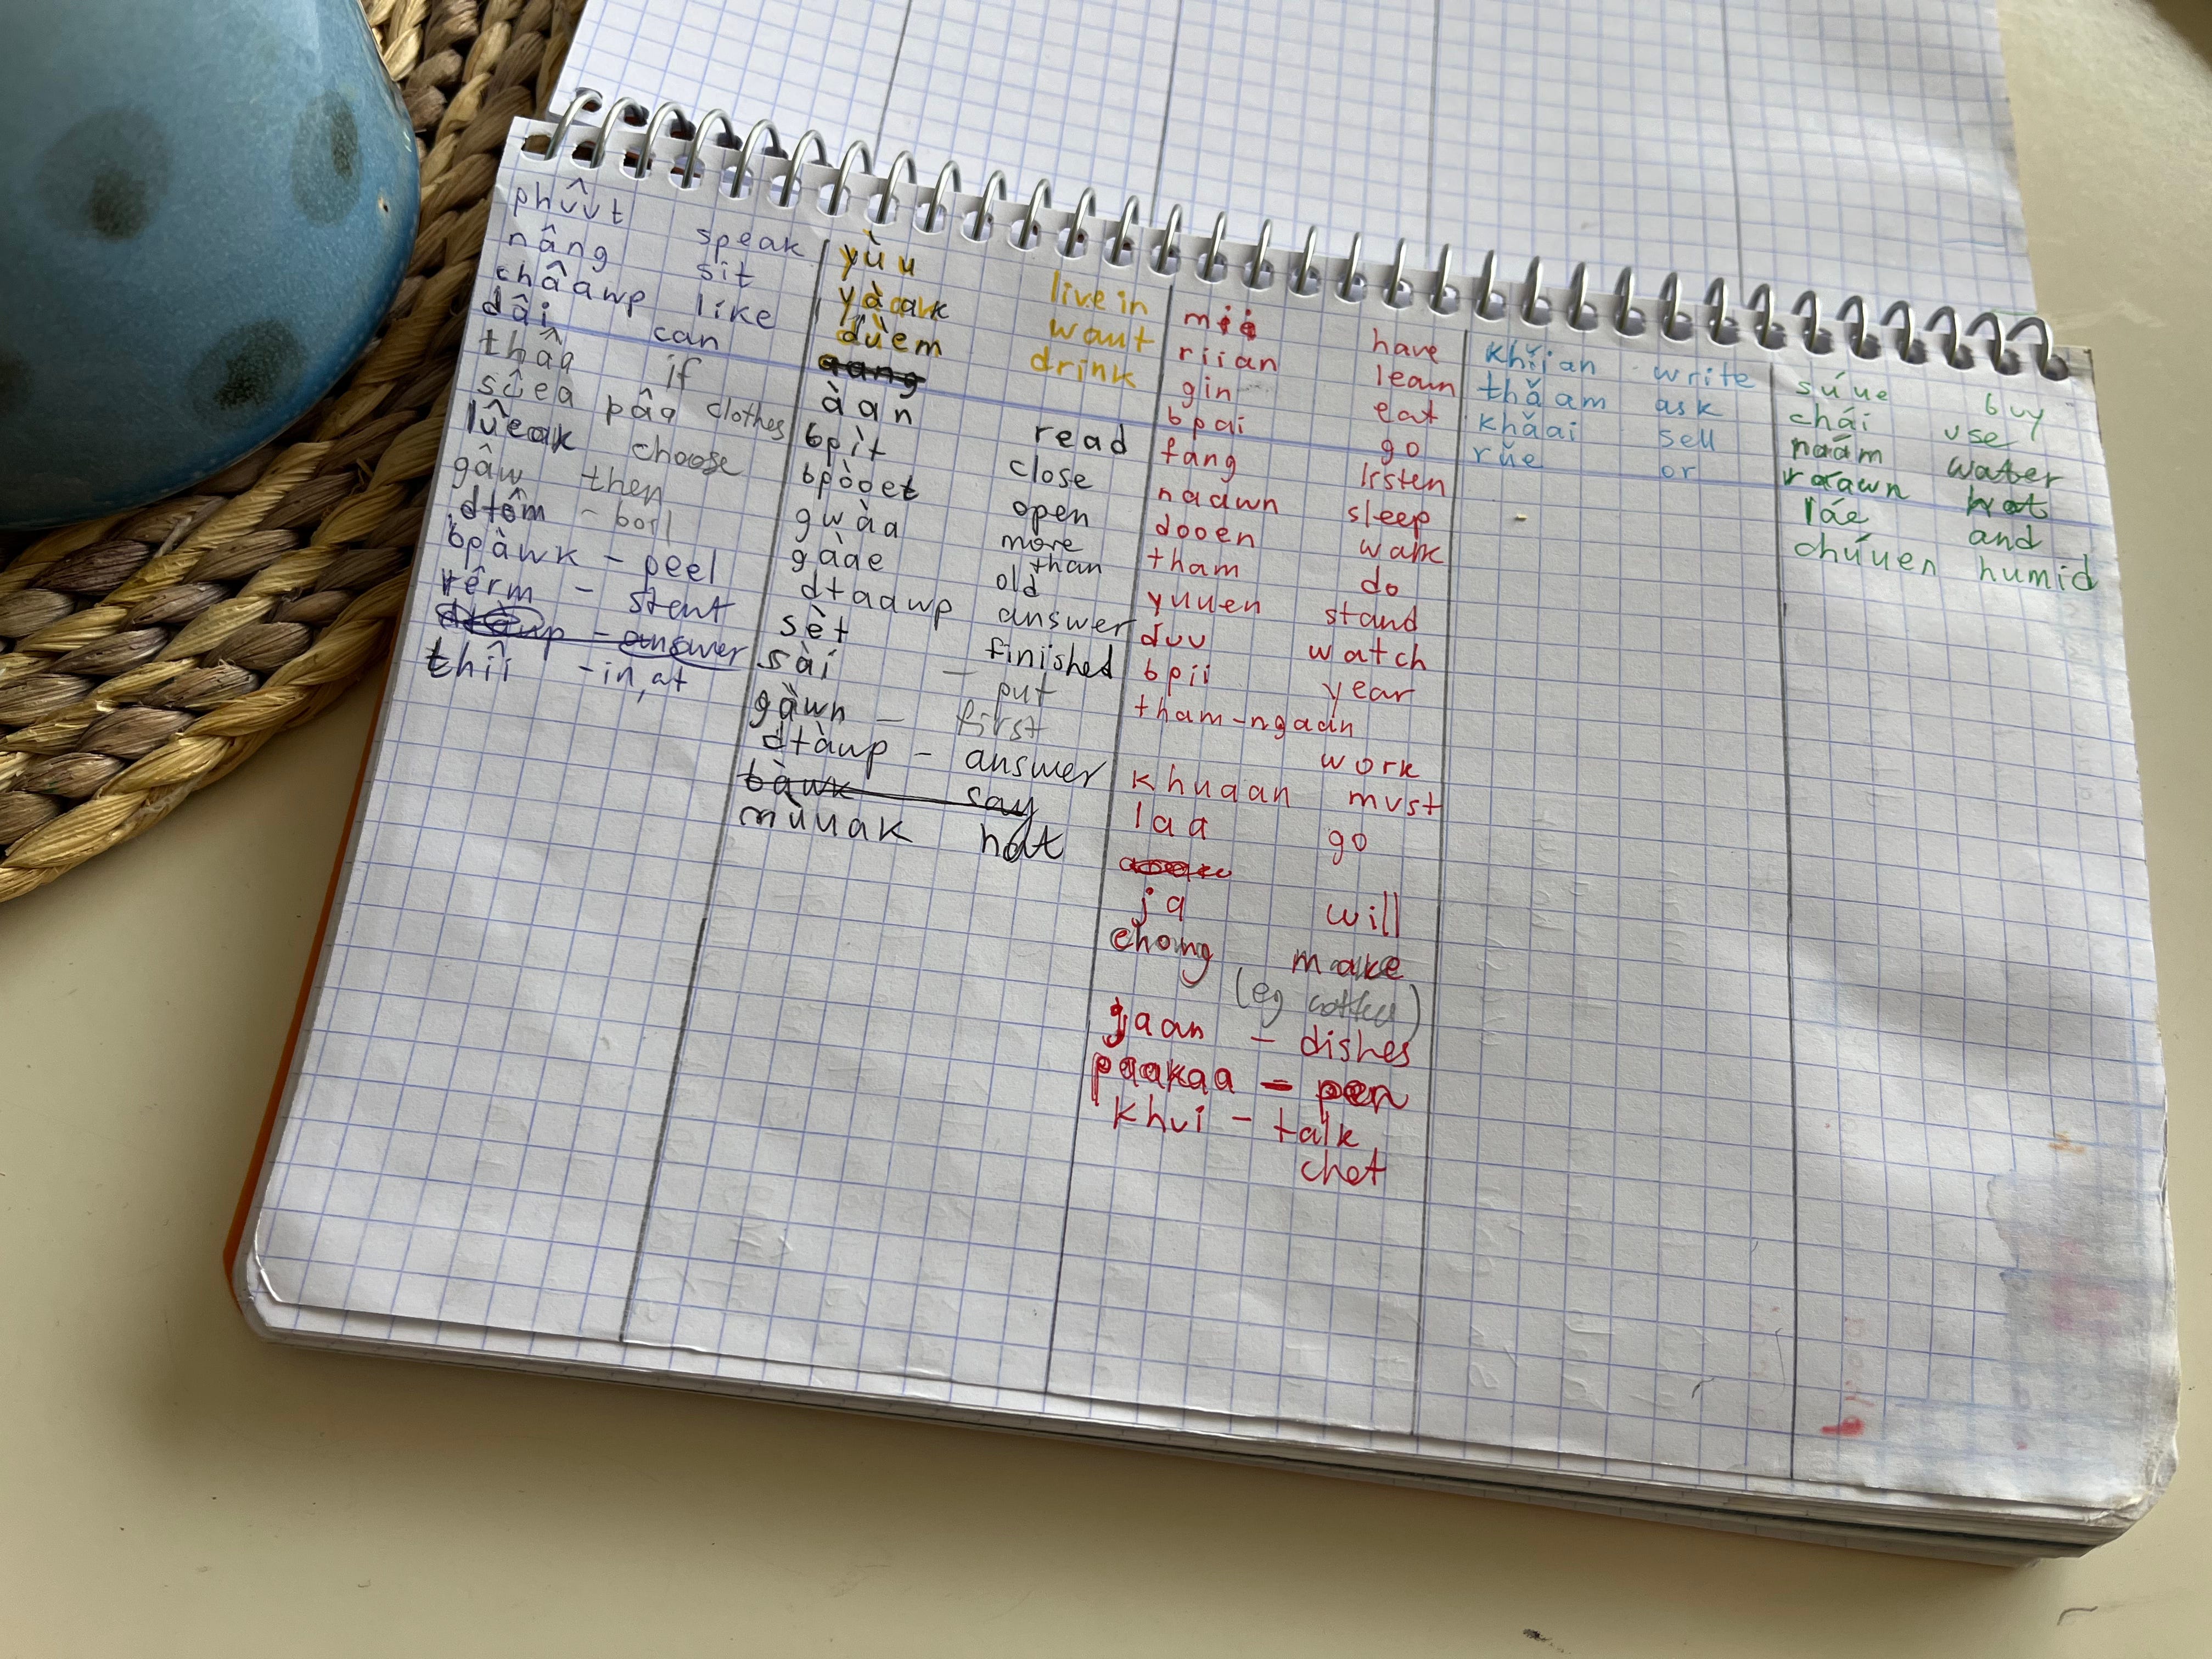 phûut speak
nâng sit
châawp like
dâi can
thâa if
sûea pâa clothes
lûeak choose
gâw then
dtôm - boil
bpàwk - peel
rêrm - start
dtàwp - answer
thîi - in, at
yùu live in
yàak want
dùem drink
àan read
bpìt close
bpòoet open
gwàa more than
gàae old
dtaawp answer
sèt finished
sài - put
gàwn - first
dtàwp - answer
bàwk say
mùuak hat
mii have
riian learn
gin eat
bpai go
fang listen
naawn sleep
dooen walk
tham do
yuuen stand
duu watch
bpii year
tham-ngaan
work
khuaan must
laa go
ja will
chong make
(eg coffee)
jaan - dishes
paakaa - pen
khui - talk
chat
khǐian write
thǎam ask
khǎai sell
rǔe or
súue buy
chái use
náam water
ráawn hot
láe and
chúuen humid